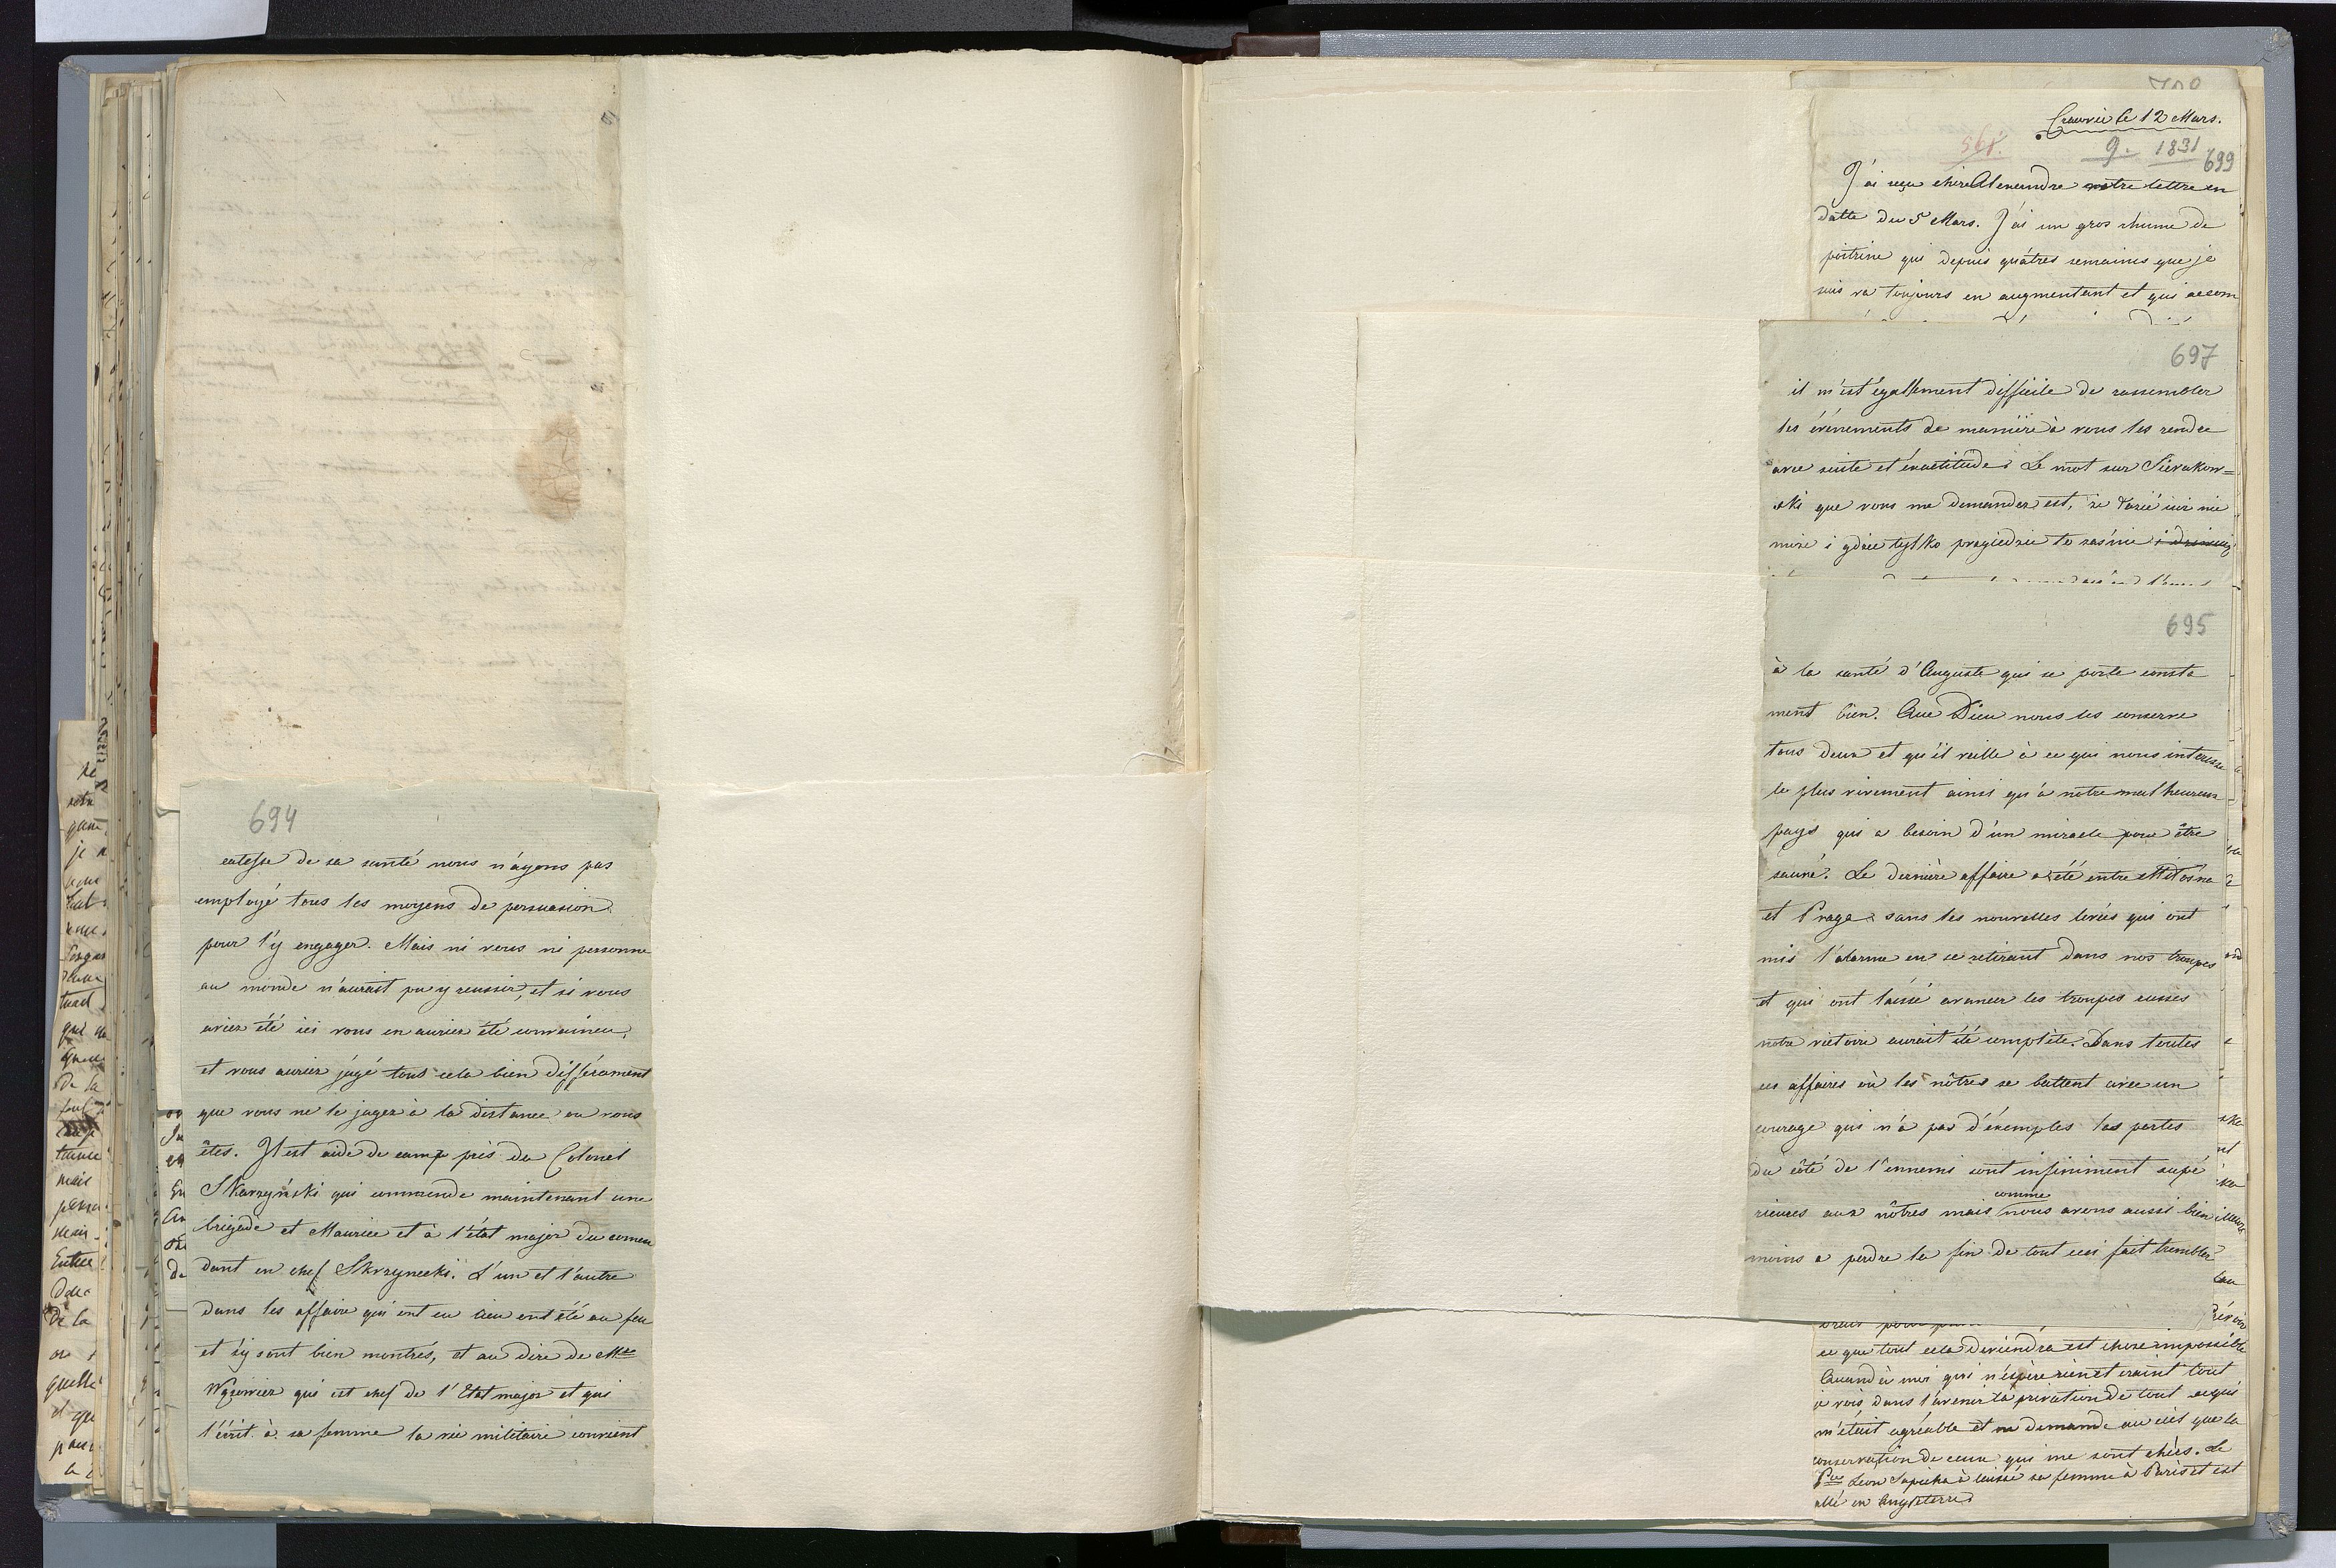 694
catesse de sa santé nous n'ayons pas
employé tous les moyens de persuasion
pour l'y engager. Mais ni vous ni personne
au monde n'aurait pu y reussir, et si vous
aviez été ici vous en auriez été convaincu,
et vous auriez jugé tout cela bien différament
que vous ne le jugez à la distance ou vous
êtes. Il est aide de camp près du Colonel
Skarzyński qui commende maintenant une
brigade et Maurice et à l'état major du comen
dant en chef Skrzynecki. L'un et l'autre
dans les affaire qui ont eu lieu ont été au feu
et s'y sont bien montrés, et au dire de
qui est chef de l'Etat major et qui
l'écrit à sa femme la vie militaire convient
700
Cracovie le 12 Mars.
568.
9. 1831
699
J'ai reçu cher Alexandre votre lettre en
datte du 5 Mars. J'ai un gros rhume de
poitrine qui depuis quâtres semaines que je
suis va toujours en augmentant et qui accom
697
il m'est également difficile de rassembler
les événements de manière à vous les rendre
avec suite et éxactitude. Le mot sur Sierakow=
ski que vous me demandez est, że
może i gdzie tylko przyjedzie to zaśnie
695
à la santé d'Auguste qui se porte consta
ment bien. Que Dieu nous les conserve
tous deux et qu'il veille à ce qui nous interesse
le plus vivement ainsi qu'à notre malheureux
pays qui a besoin d'un miracle pour être
sauvé. La dernière affaire a été entre Miłosna
et Praga sans les nouvelles levées qui ont
mis l'alarme en se retirant dans nos troupes
et qui ont laissé avancer les troupes russes
notre victoire aurait été complète. Dans toutes
ces affaires où les nôtres se battent avec un
courage qui n'a pas d'éxemples les pertes
du côté de l'ennemi sont infiniment supé
rieures aux nôtres mais comme nous avons aussi bien
moins a perdre la fin de tout ceci fait trembler
ce que tout cela deviendra est chose impossible
Quand à moi qui n'éspère rien et craint tout
je vois dans l'avenir la privation de tout ce qui
m'était agréable et ne demande au ciel que la
conservation de ceux qui me sont chèrs. Le
Pce Leon Sapieha à laissé sa femme à Paris et est
allé en Angleterre